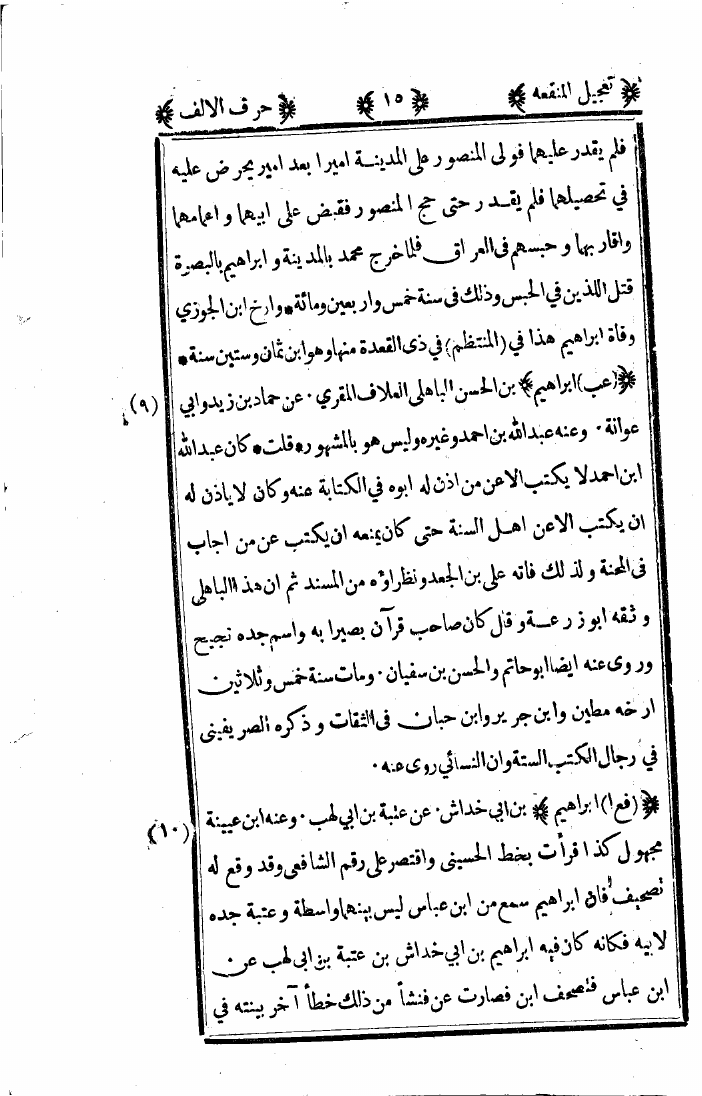 ﴿ تعجيل المنفعه ﴾ ﴿ ١٥ ﴾ ﴿ حرف الالف ﴾
فلم يقدر عليهما فولى المنصور على المدينة اميرا بعد امير يحرض عليه
في تحصيلهما فلم يقدر حتى حج المنصور فقبض على ابيهما واعمامهما
واقاربهما وحبسهم فى العراق فلما خرج محمد بالمدينة وابراهيم بالبصرة
قتل اللذين في الحبس وذلك فى سنة خمس واربعين ومائة * وارخ ابن الجوزي
وفاة ابراهيم هذا في (المنتظم) في ذى القعدة منها وهو ابن ثمان وستين سنة *
﴿(عب) ابراهيم﴾ بن الحسن الباهلى العلاف المقري . عن حماد بن زيد وابي (٩)
عوانة . وعنه عبدالله بن احمد وغيره وليس هو بالمشهور * قلت * كان عبدالله
ابن احمد لا يكتب الاعن من اذن له ابوه في الكتابة عنه وكان لا ياذن له
ان يكتب الاعن اهل السنة حتى كان يمنعه ان يكتب عن من اجاب
فى المحنة ولذلك فاته على بن الجعد ونظراؤه من المسند ثم ان هذا الباهلى
وثقه ابو زرعة وقال كان صاحب قرآن بصيرا به واسم جده نجيح
وروى عنه ايضا ابو حاتم والحسن بن سفيان . ومات سنة خمس وثلاثين
ارخه مطين وابن جرير وابن حبان فى الثقات وذكره الصريفينى
في رجال الكتب الستة وان النسائي روى عنه .
﴿(فع ا) ابراهيم ﴾ بن ابي خداش . عن عتبة بن ابي لهب . وعنه ابن عيينة (١٠)
مجهول كذا قرأت بخط الحسينى واقتصر على رقم الشافعى وقد وقع له
تصحيف فان ابراهيم سمع من ابن عباس ليس بينهما واسطة وعتبة جده
لابيه فكانه كان فيه ابراهيم بن ابي خداش بن عتبة بن ابى لهب عن
ابن عباس فتصحف ابن فصارت عن فنشأ من ذلك خطأ آخر بينته في